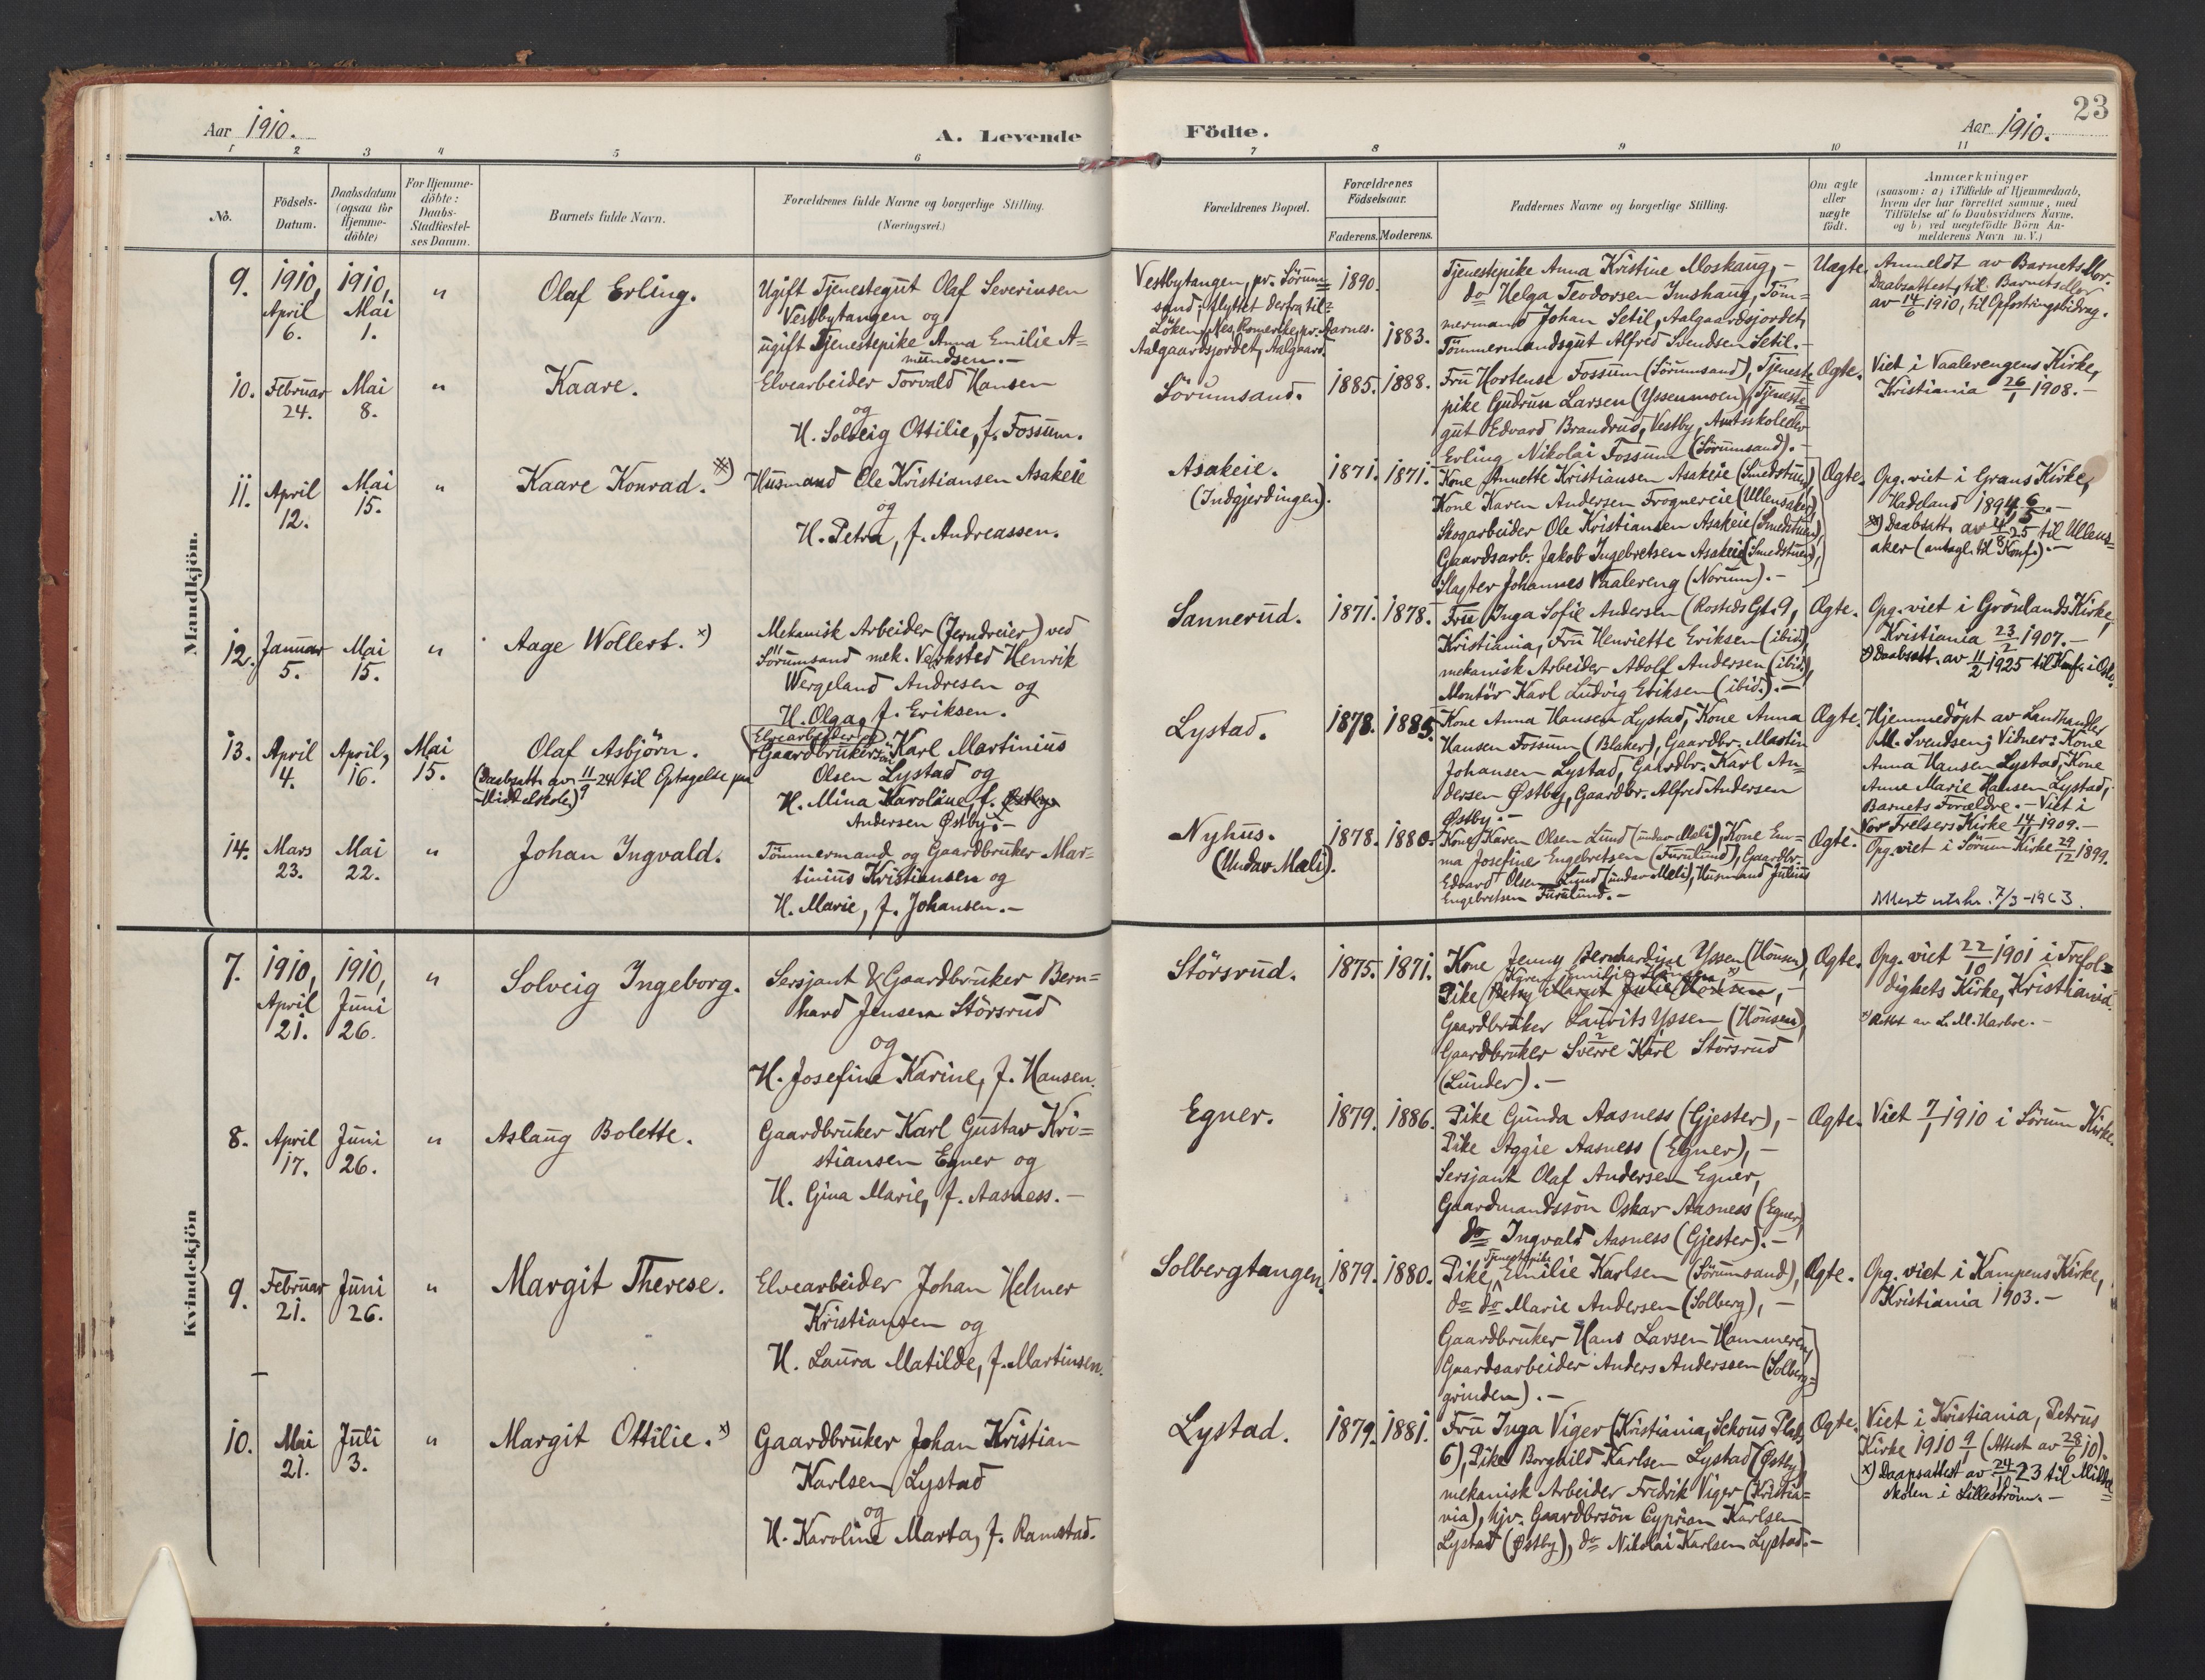 Aar 1910.
A. Levende
1 2 3 4 5 6
No.
Födsels-
Datum.
Daabsdatum
(ogsaa for
Hjemme-
döbte)
For Hjemme-
döbte:
Daabs-
Stadfæstel-
ses Datum.
Barnets fulde Navn.
Forældrenes fulde Navne og borgerlige Stilling.
(Næringsvei.)
Mandkjön.
9. 1910, April 6.
1910, Mai 1.
"
Olaf Erling.
Ugift Tjenestegut Olaf Severinsen
Vestbytangen og
ugift Tjenestepike Anna Emilie A=
mundsen.-
10. Februar 24.
Mai 8.
"
Kaare.
Elvearbeider Torvald Hansen
og
H. Solveig Ottilie, f. Fossum.
11. April 12.
Mai 15.
"
Kaare Konrad. x)
Husmand Ole Kristiansen Asakeie
og
H. Petra, f. Andreassen.
12. Januar 5.
Mai 15.
"
Aage Wollert. x)
Mekanisk Arbeider (Jerndreier) ved
Sörumsand mek. Verksted Henrik
Wergeland Andresen og
H. Olga, f. Eriksen.
13. April 4.
April, 16.
Mai 15.
Olaf Asbjörn.
(Daabsatt. av 11/9 24 til Optagelse paa
Middelskole)
(Elvearbeider og)
Gaardbrukersön Karl Martinius
Olsen Lystad og
H. Mina Karoline, f. Østby
Andersen Østby.-
14. Mars 23.
Mai 22.
"
Johan Ingvald.
Tömmermand og Gaardbruker Mar=
tinius Kristiansen og
H. Marie, f. Johansen.-
Kvindekjön
7. 1910, April 21.
1910, Juni 26.
"
Solveig Ingeborg.
Sersjant & Gaardbruker Bern=
hard Jensen Störsrud
og
H. Josefine Karine, f. Hansen.
8. April 17.
Juni 26.
"
Aslaug Bolette.
Gaardbruker Karl Gustav Kri=
stiansen Egner og
H. Gina Marie, f. Aasness.-
9. Februar 21.
Juni 26.
"
Margit Therese.
Elvearbeider Johan Helmer
Kristiansen og
H. Laura Matilde, f. Martinsen.
10. Mai 21.
Juli 3.
"
Margit Ottilie. x)
Gaardbruker Johan Kristian
Karlsen Lystad
og
H. Karoline Marta, f. Ramstad.
23
Födte.
Aar 1910.
7 8 9 10 11
Forældrenes Bopæl.
Forældrenes
Födselsaar.
Faderens. Moderens.
Faddernes Navne og borgerlige Stilling.
Om ægte
eller
uægte
födt.
Anmærkninger
(saasom: a) i Tilfælde af Hjemmedaab,
hvem der har forrettet samme, med
Tilföielse af to Daabsvidners Navne,
og b) ved uægtefödte Börn An-
melderens Navn m. V.)
Vestbytangen, pr. Sörum=
sand; flyttet derfra til
Löken, Nes, Romerike, pr. Aarnes.
Aalgaardsjordet, Aalgaard.
1890. 1883.
Tjenestepike Anna Kristine Moskaug,-
do Helga Teodorsen Imshaug, Töm=
mermand Johan Setil, Aalgaardsjordet,
Tömmermandsgut Alfred Svendsen Setil.-
Uægte.
Anmeldt av Barnets Mor.
Daabsattest til Barnets Mor
av 14/6 1910, til Opfostringsbidrag.
Sörumsand.
1885. 1888.
Fru Hortense Fossum (Sörumsand), Tjeneste=
pike Gudrun Larsen (Yssenmoen), Tjeneste=
gut Edvard Brandrud, Vestby, Amtsskoleelev
Erling Nikolai Fossum (Sörumsand).-
Ægte.
Viet i Vaalerengens Kirke,
Kristiania 26/1 1908.-
Asakeie.
(Indgjerdingen).
1871. 1871.
Kone Annette Kristiansen Asakeie (Smedstuen),
Kone Karen Andersen Frognereie (Ullensaker),
Skogarbeider Ole Kristiansen Asakeie (Smedstuen),
Gaardsarb. Jakob Ingebretsen Asakeie (Smedstuen),
Slagter Johannes Vaalereng (Norum).-
Ægte.
Opg. viet i Grans Kirke,
Hadeland 1894 6/5.-
x) Daabsatt. av 4/8 25 til Ullens=
aker (antagl. til Konf.).-
Sannerud.
1871. 1878.
Fru Inga Sofie Andersen (Rosteds Gt. 9,
Kristiania, Fru Henriette Eriksen (ibid.),
mekanisk Arbeider Adolf Andersen (ibid.),
Montör Karl Ludvig Eriksen (ibid.).-
Ægte.
Opg. viet i Grönlands Kirke,
Kristiania 23/2 1907.-
x) Daabsatt. av 11/2 1925 til Konf. i Oslo.
Lystad.
1878. 1885.
Kone Anna Hansen Lystad, Kone Anna
Hansen Fossum (Blaker), Gaardbr. Martin
Johansen Lystad, Gaardbr. Karl An=
dersen Østby, Gaardbr. Alfred Andersen
Østby.-
Ægte.
Hjemmedöpt av Landhandler
M. Svendsen; Vidner: Kone
Anna Hansen Lystad, Kone
Anne Marie Hansen Lystad,
Barnets Forældre.- Viet i
Vor Frelsers Kirke 14/11 1909.-
Nyhus.
(Undar Mæli).
1878. 1880.
Kone Karen Olsen Lund (undar Mæli), Kone Em=
ma Josefine Engebretsen (Furulund), Gaardbr.
Edvard Olsen Lund (undar Mæli), Husmand Julius
Engebretsen Furulund.-
Ægte.
Opg. viet i Sörum Kirke 29/12 1899.
Attest utskr. 7/3-1963.
Störsrud.
1875. 1871.
Kone Jenny Bernhardine Yssen (Hönsen),
Karen Emilie Hansen x)
Pike Betsy Margit Julie Hönsen,-
Gaardbruker Laurits Yssen (Hönsen),
Gaardbruker Sverre Karl Störsrud
(Lunder).-
Ægte.
Opg. viet 22/10 1901 i Trefol=
dighets Kirke, Kristiania.
x) Rettet av L. M. Harboe.-
Egner.
1879. 1886.
Pike Gunda Aasness (Gjester),-
Pike Aggie Aasness (Egner),-
Sersjant Olaf Andersen Egner,
Gaardmandssön Oskar Aasness (Egner),
do Ingvald Aasness (Gjester).-
Ægte.
Viet 7/1 1910 i Sörum Kirke.
Solbergtangen.
1879. 1880.
Tjenestepike
Pike Emilie Karlsen (Sörumsand),
do do Marie Andersen (Solberg),-
Gaardbruker Hans Larsen Hammeren,
Gaardsarbeider Anders Anderssen (Solberg=
grinden).-
Ægte.
Opg. viet i Kampens Kirke,
Kristiania 1903.-
Lystad.
1879. 1881.
Fru Inga Viger (Kristiania, Schous Plads
6), Pike Borghild Karlsen Lystad (Østby),
mekanisk Arbeider Fredrik Viger (Kristia=
nia), hjv. Gaardbrsön Cyprian Karlsen
Lystad (Østby), do Nikolai Karlsen Lystad.-
Ægte.
Viet i Kristiania, Petrus
Kirke 1910 9/1 (Attest av 28/6 10).
x) Daapsattest av 24/10 23 til Middel=
skolen i Lilleström.-